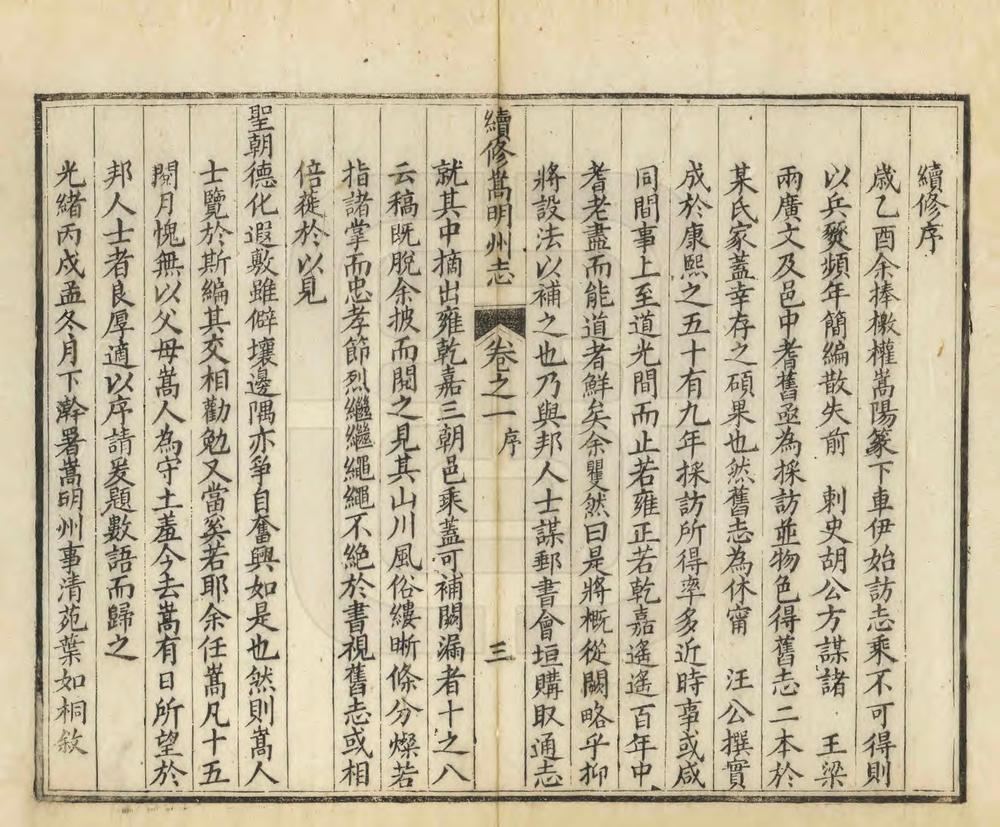 續修序
歲乙酉余捧檄權嵩陽篆下車伊始訪志乘不可得則
以兵燹頻年簡編散失前 刺史胡公方謀諸 王梁
兩廣文及邑中耆舊亟為採訪並物色得舊志二本於
某氏家蓋幸存之碩果也然舊志為休甯 汪公撰實
成於康熙之五十有九年採訪所得率多近時事或咸
同間事上至道光間而止若雍正若乾嘉遙遙百年中
耆老盡而能道者鮮矣余瞿然曰是將概從闕略乎抑
將設法以補之也乃與邦人士謀郵書會垣購取通志
續修嵩明州志 卷之一 序 三
就其中摘出雍乾嘉三朝邑乘蓋可補闕漏者十之八
云稿既脫余披而閱之見其山川風俗縷晰條分燦若
指諸掌而忠孝節烈繼繼繩繩不絕於書視舊志或相
倍蓰於以見
聖朝德化遐敷雖僻壤邊隅亦爭自奮興如是也然則嵩人
士覽於斯編其交相勸勉又當奚若耶余任嵩凡十五
閱月愧無以父母嵩人為守土羞今去嵩有日所望於
邦人士者良厚適以序請爰題數語而歸之
光緒丙戌孟冬月下澣署嵩明州事清苑葉如桐敘